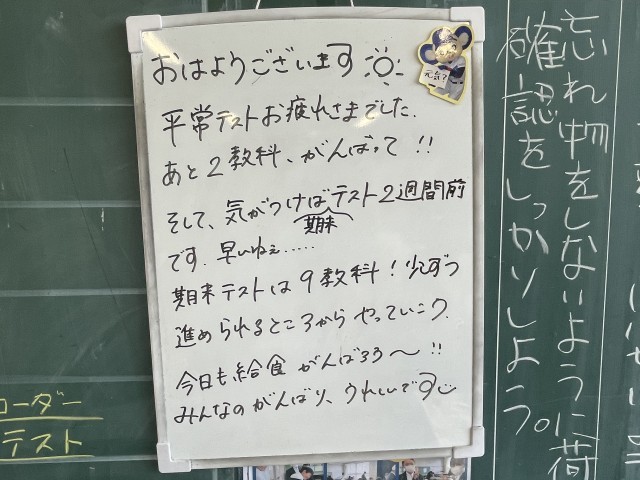 おはようございます
元気?
平常テストお疲れさまでした.
あと2教科、がんばって!!
そして、気がつけばテスト2週間前
期末
です.早いねぇ.....
期末テストは9教科!少しずつ
進められるところからやっていこう.
今日も給食がんばろう〜!!
みんなのがんばり、うれしいです
忘れ物をしないように荷
確認をしっかりしよう。
コーダー
テスト